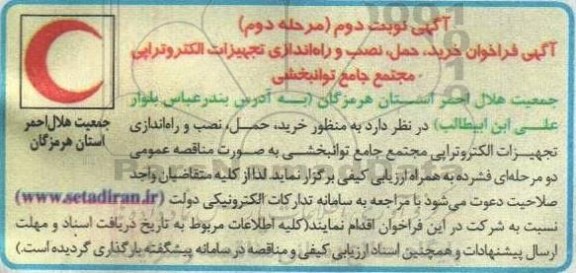 آگهی نوبت دوم (مرحله دوم)
آگهی فراخوان خرید، حمل، نصب و راه‌اندازی تجهیزات الکتروتراپی
مجتمع جامع توانبخشی
جمعیت هلال احمر استان هرمزگان (به آدرس بندرعباس بلوار
علی ابن ابیطالب) در نظر دارد به منظور خرید، حمل، نصب و راه‌اندازی
تجهیزات الکتروتراپی مجتمع جامع توانبخشی به صورت مناقصه عمومی
دو مرحله‌ای فشرده به همراه ارزیابی کیفی برگزار نماید. لذا از کلیه متقاضیان واجد
صلاحیت دعوت می‌شود با مراجعه به سامانه تدارکات الکترونیکی دولت (www.setadiran.ir)
نسبت به شرکت در این فراخوان اقدام نمایند(کلیه اطلاعات مربوط به تاریخ دریافت اسناد و مهلت
ارسال پیشنهادات و همچنین اسناد ارزیابی کیفی و مناقصه در سامانه پیشگفته بارگذاری گردیده است.)
جمعیت هلال احمر
استان هرمزگان